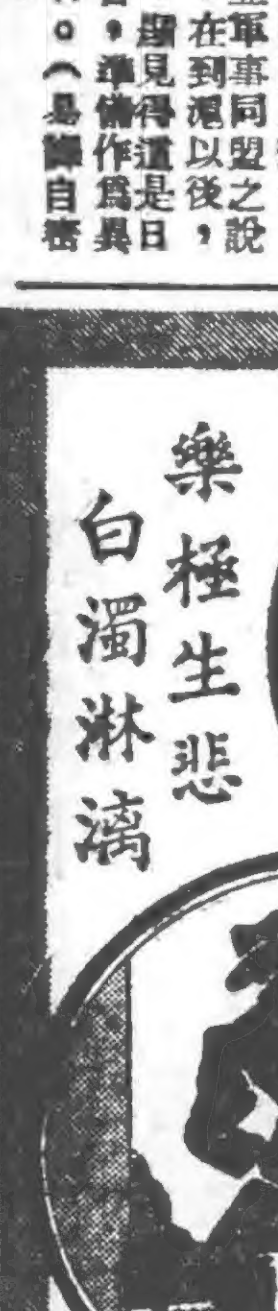 軍事同盟之說
在到滬以後，
見得這是日
，準備作爲異
。（易譯自密
樂極生悲
白濁淋漓